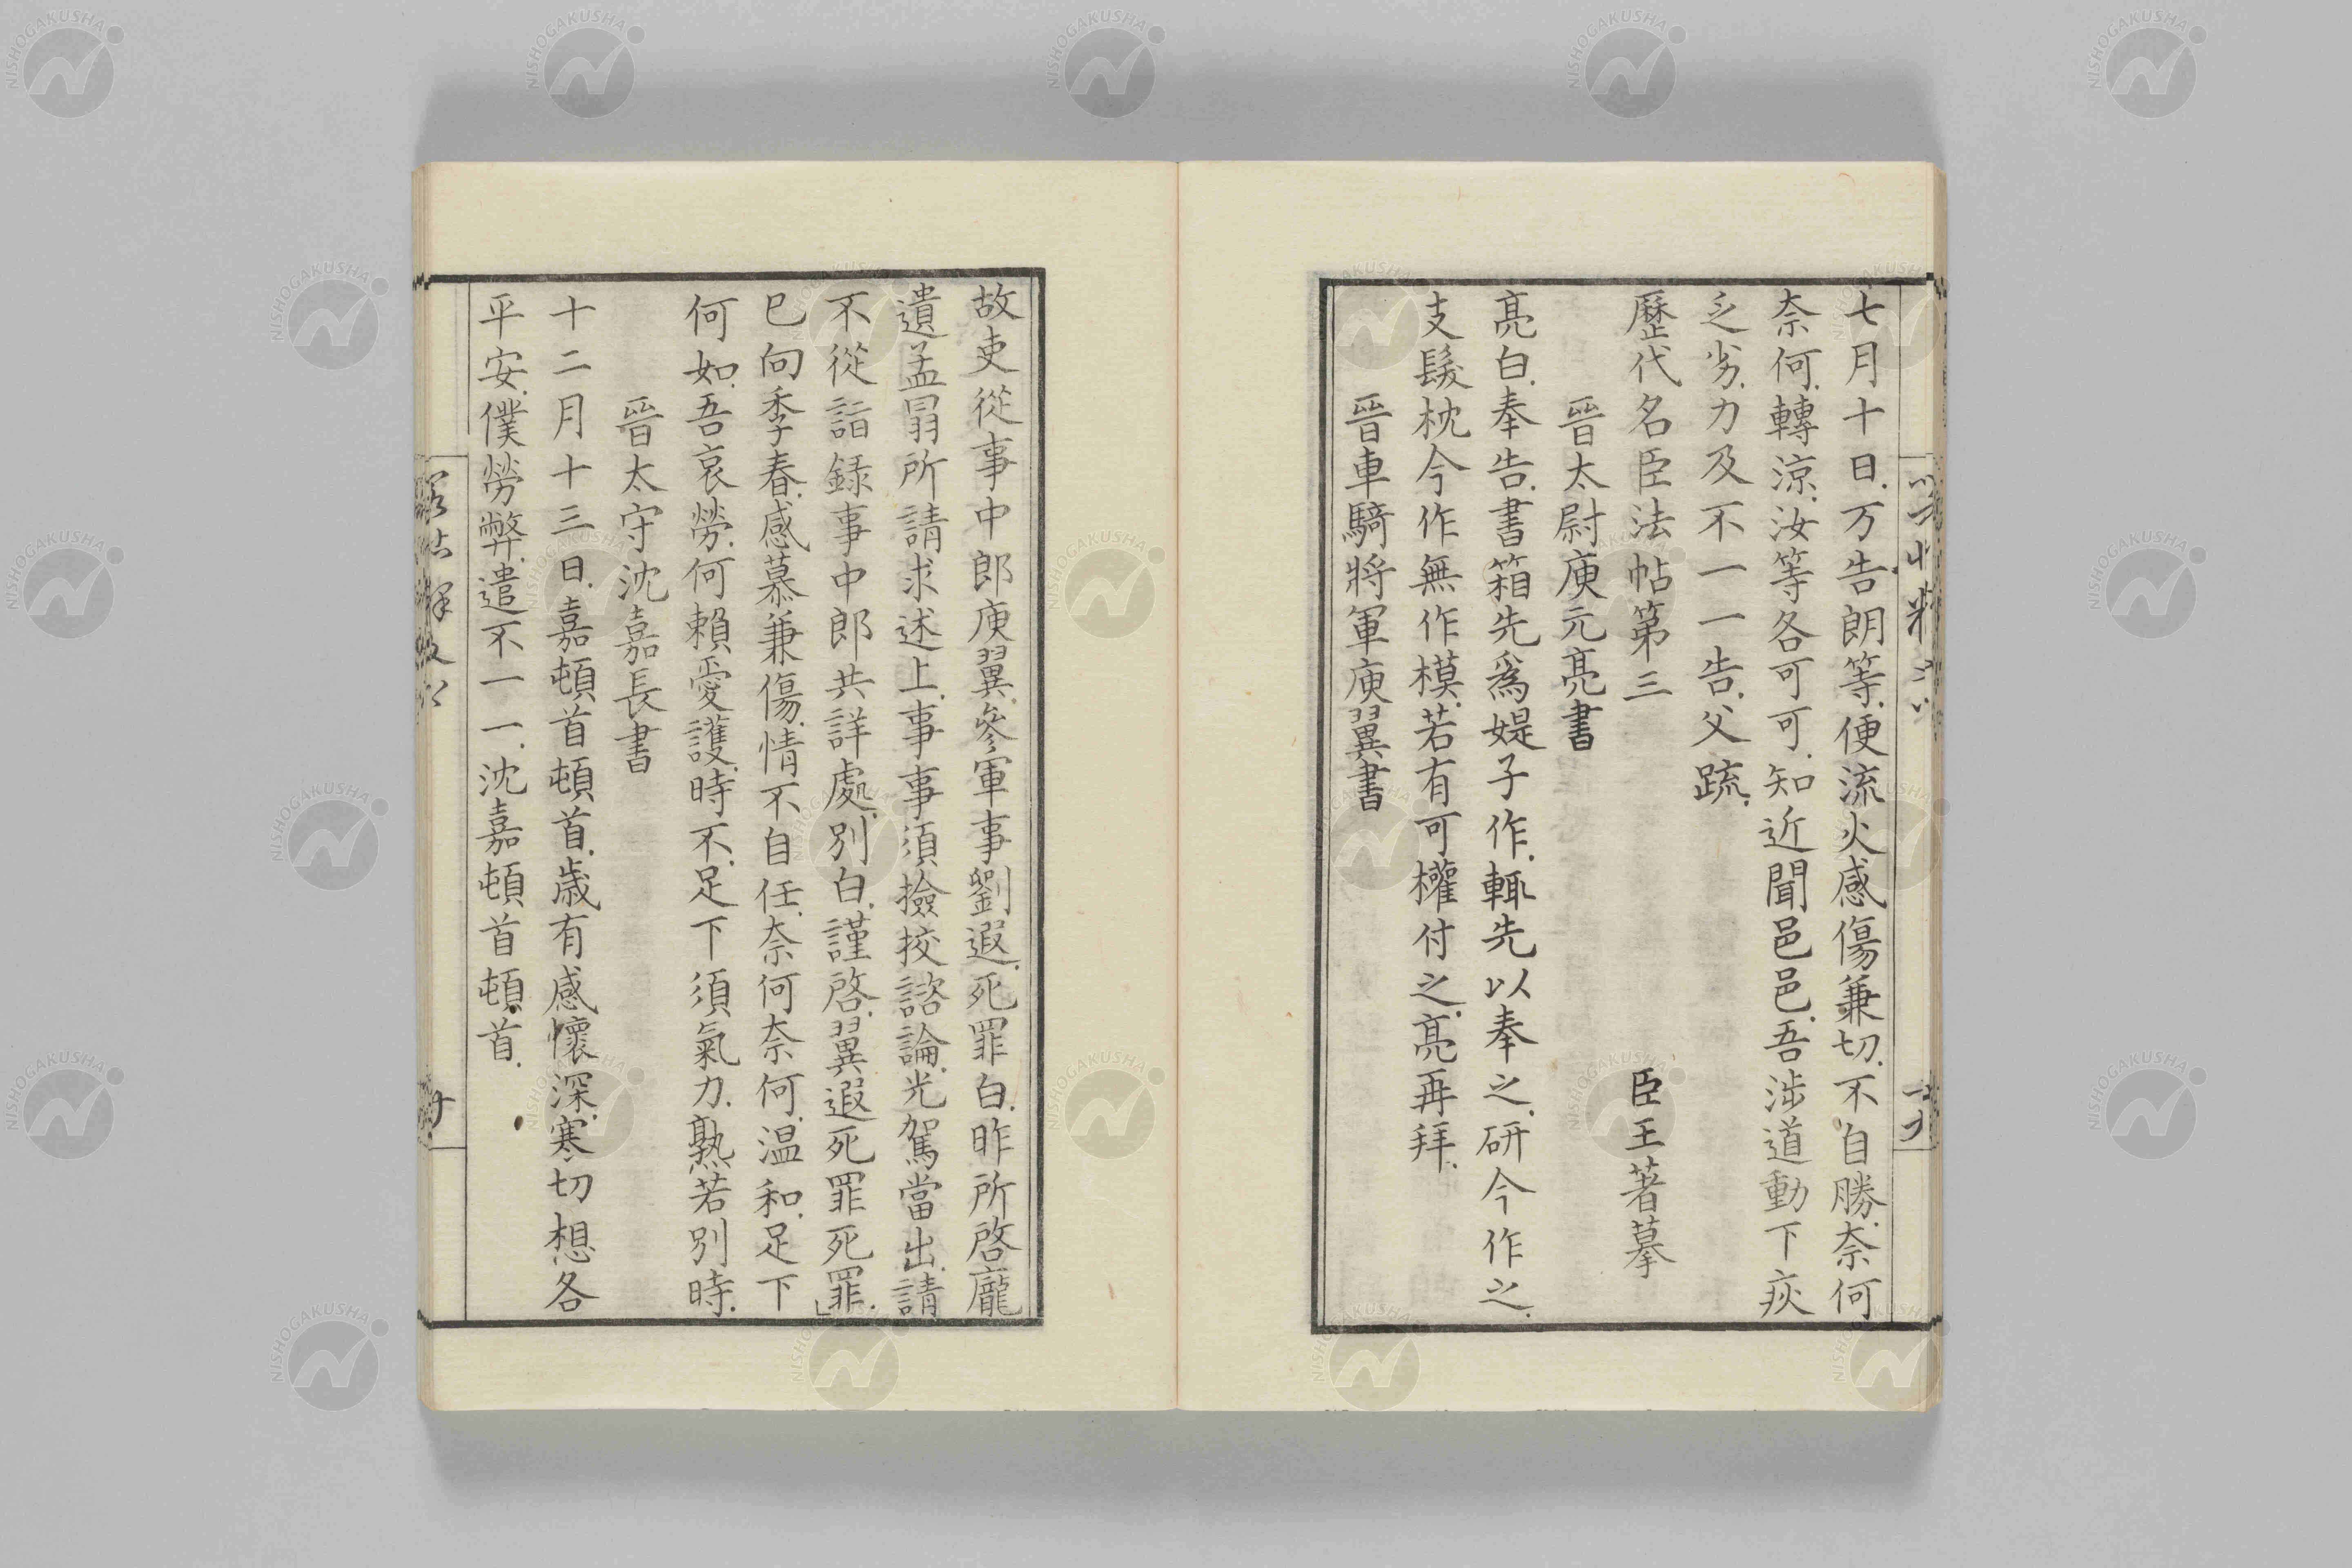 七月十日.万告朗等.便流火感傷兼切.不自勝.奈何
奈何.轉涼.汝等各可可.知近聞邑邑.吾涉道動下疢
乏劣.力及不一一告.父疏.
歷代名臣法帖第三 臣王著摹
晉太尉庾元亮書
亮白.奉告.書箱先爲媞子作.輙先以奉之.研今作之.
支髮枕今作無作模.若有可權付之.亮再拜.
晉車騎將軍庾翼書
故吏從事中郎庾翼.參軍事劉遐.死罪白.昨所啓龐
遺孟冐所請求述上.事事須撿挍諮論.光駕當出.請
不從詣録事中郎共詳處.別白.謹啓.翼遐死罪死罪.
巳向季春.感慕兼傷.情不自任.奈何奈何.温和.足下
何如.吾哀勞.何賴愛護.時不足下須氣力.熟若別時.
晉太守沈嘉長書
十二月十三日.嘉頓首頓首.歳有感懷深.寒切想各
平安.僕勞弊.遣不一一.沈嘉頓首頓首.
NISHOGAKUSHA